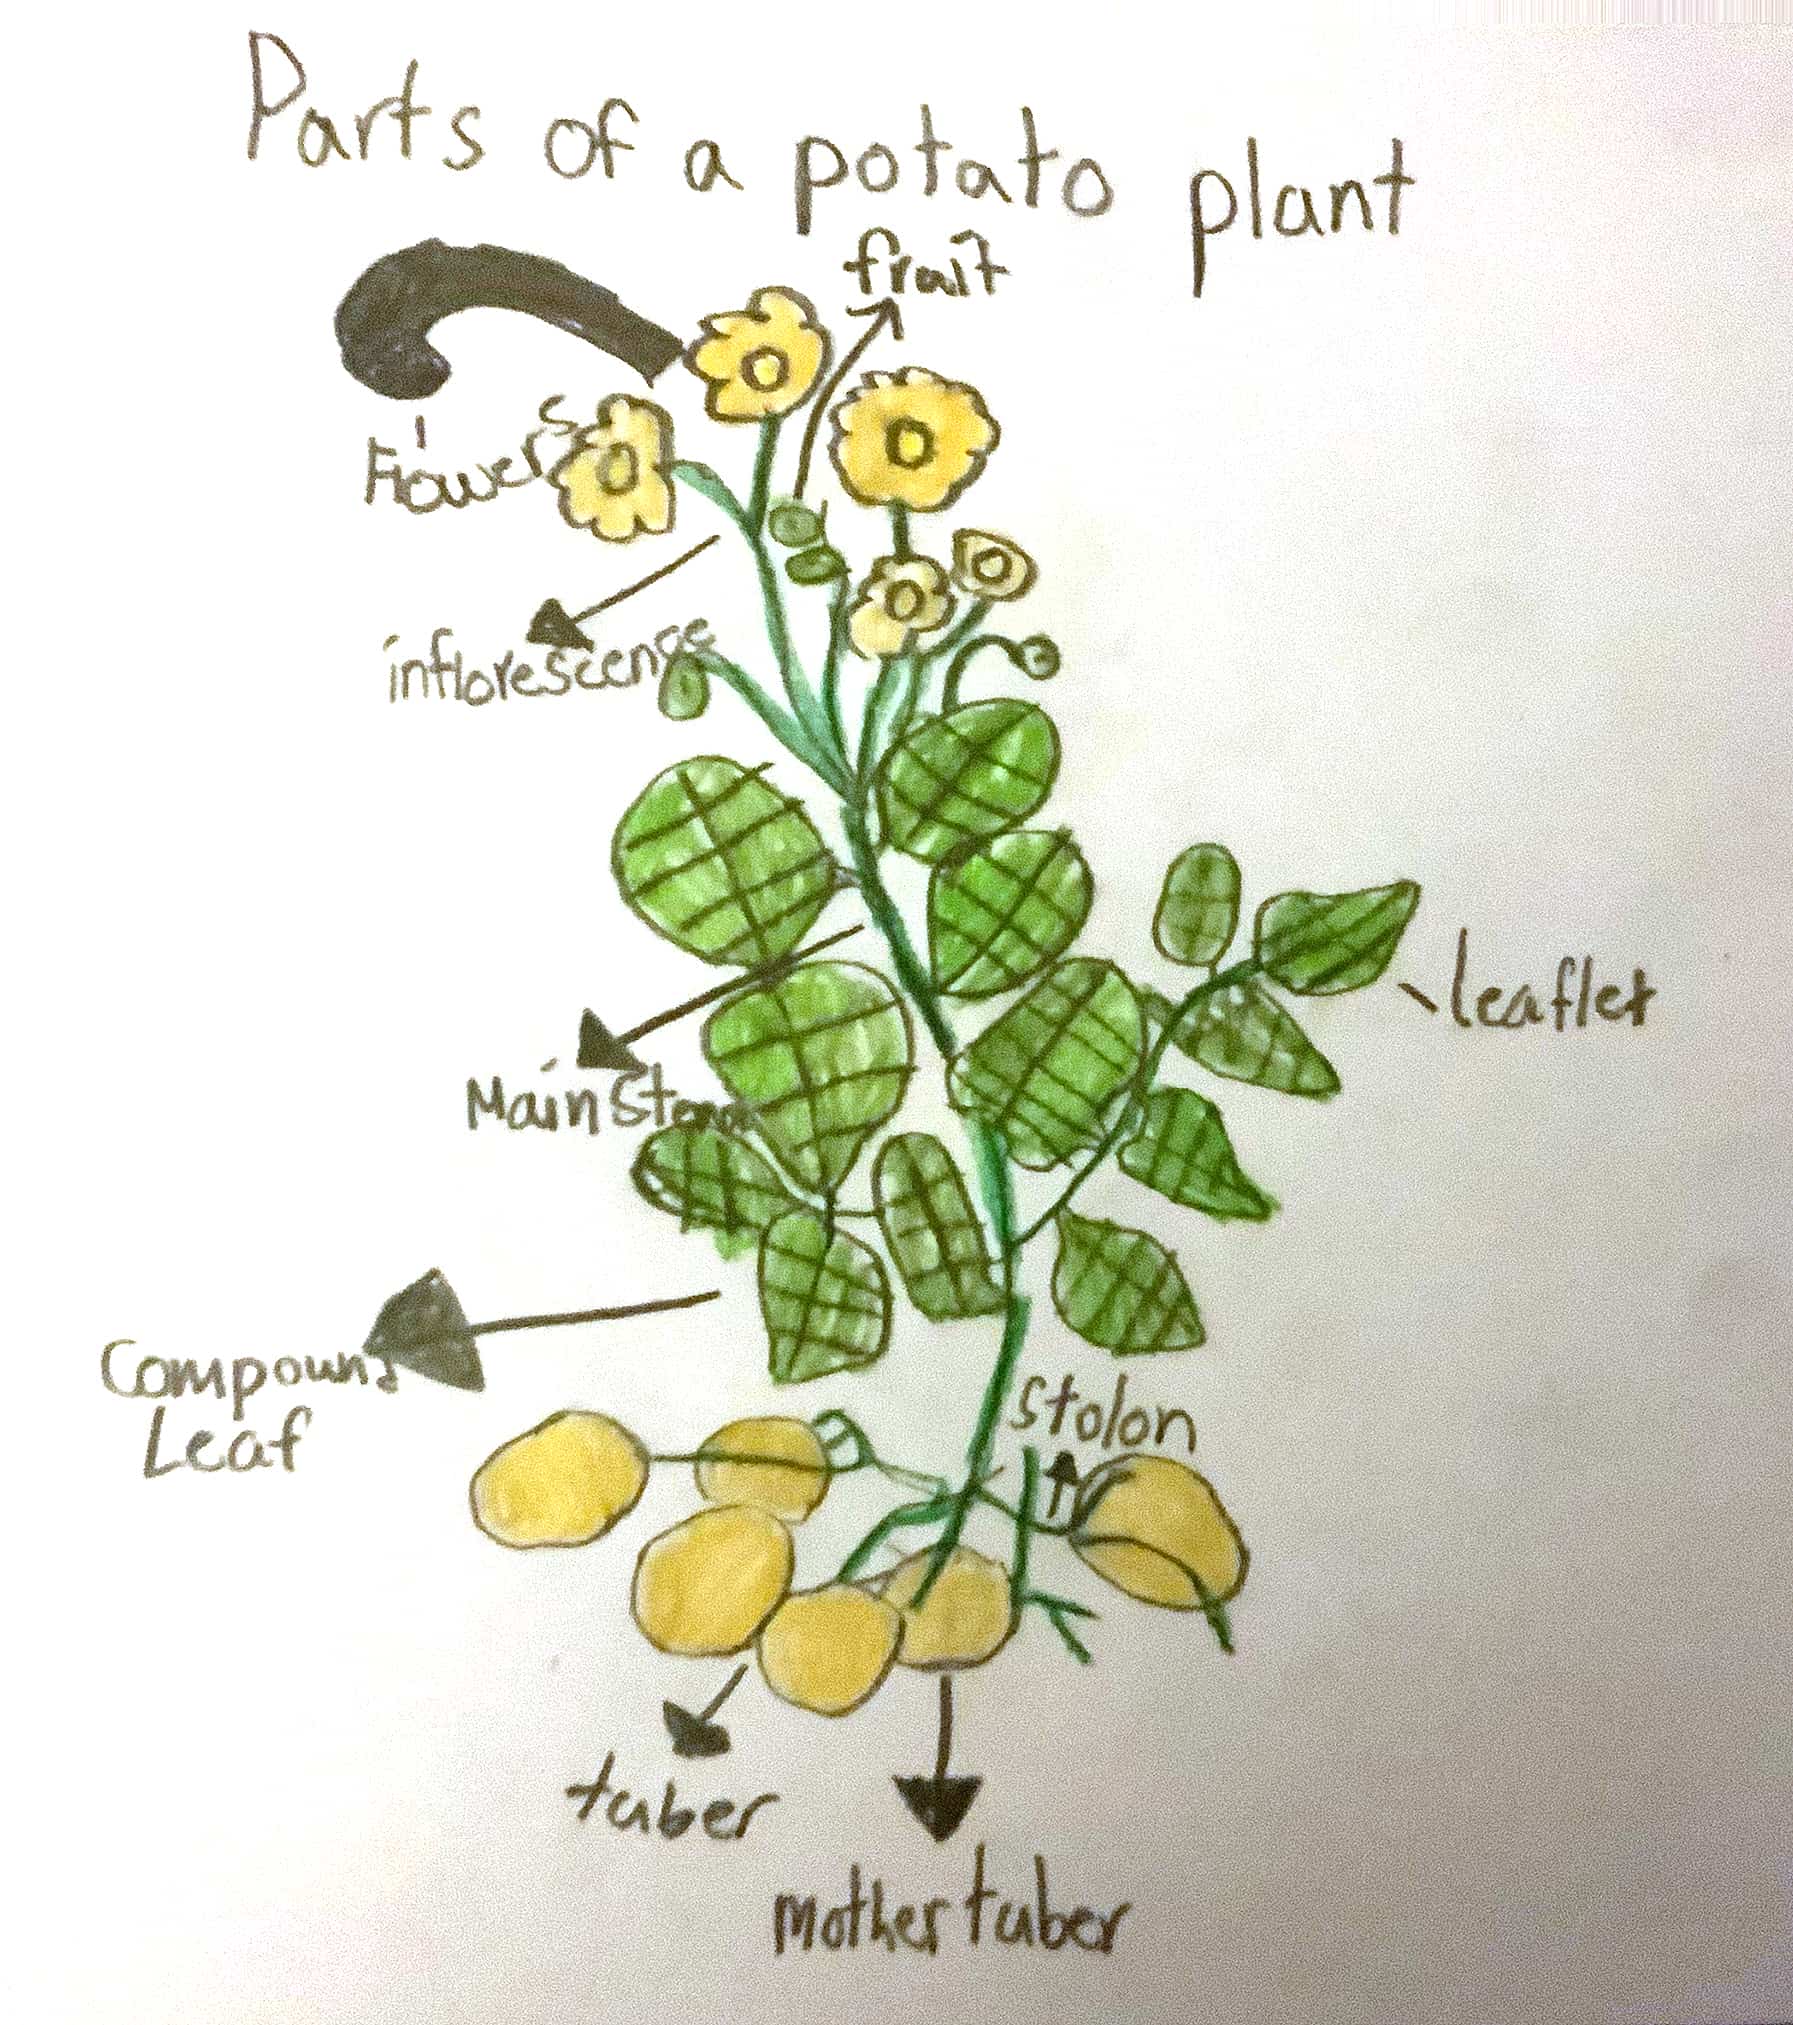 Parts of a potato plant
fruit
Flowers
inflorescence
Main Stem
leaflet
Compound
Leaf
Stolon
tuber
mother tuber